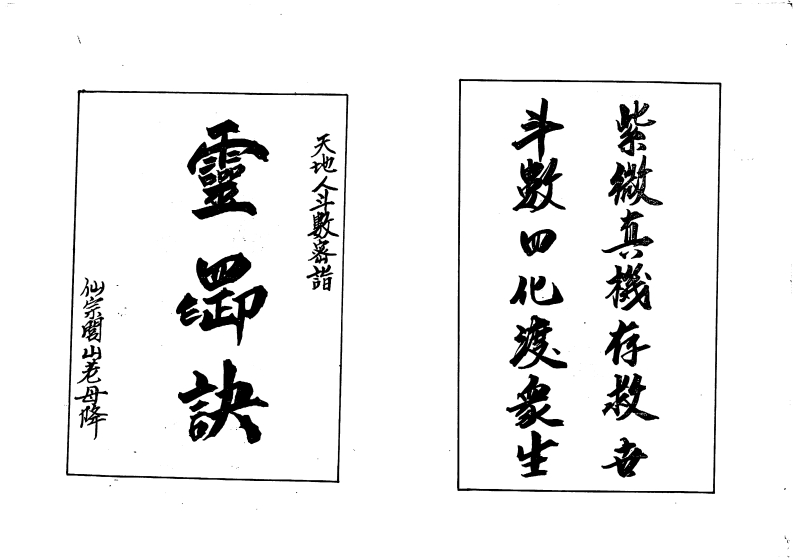 紫微真機存救世
斗數四化渡衆生
天地人斗數密詣
訣
仙宗閭山老母降